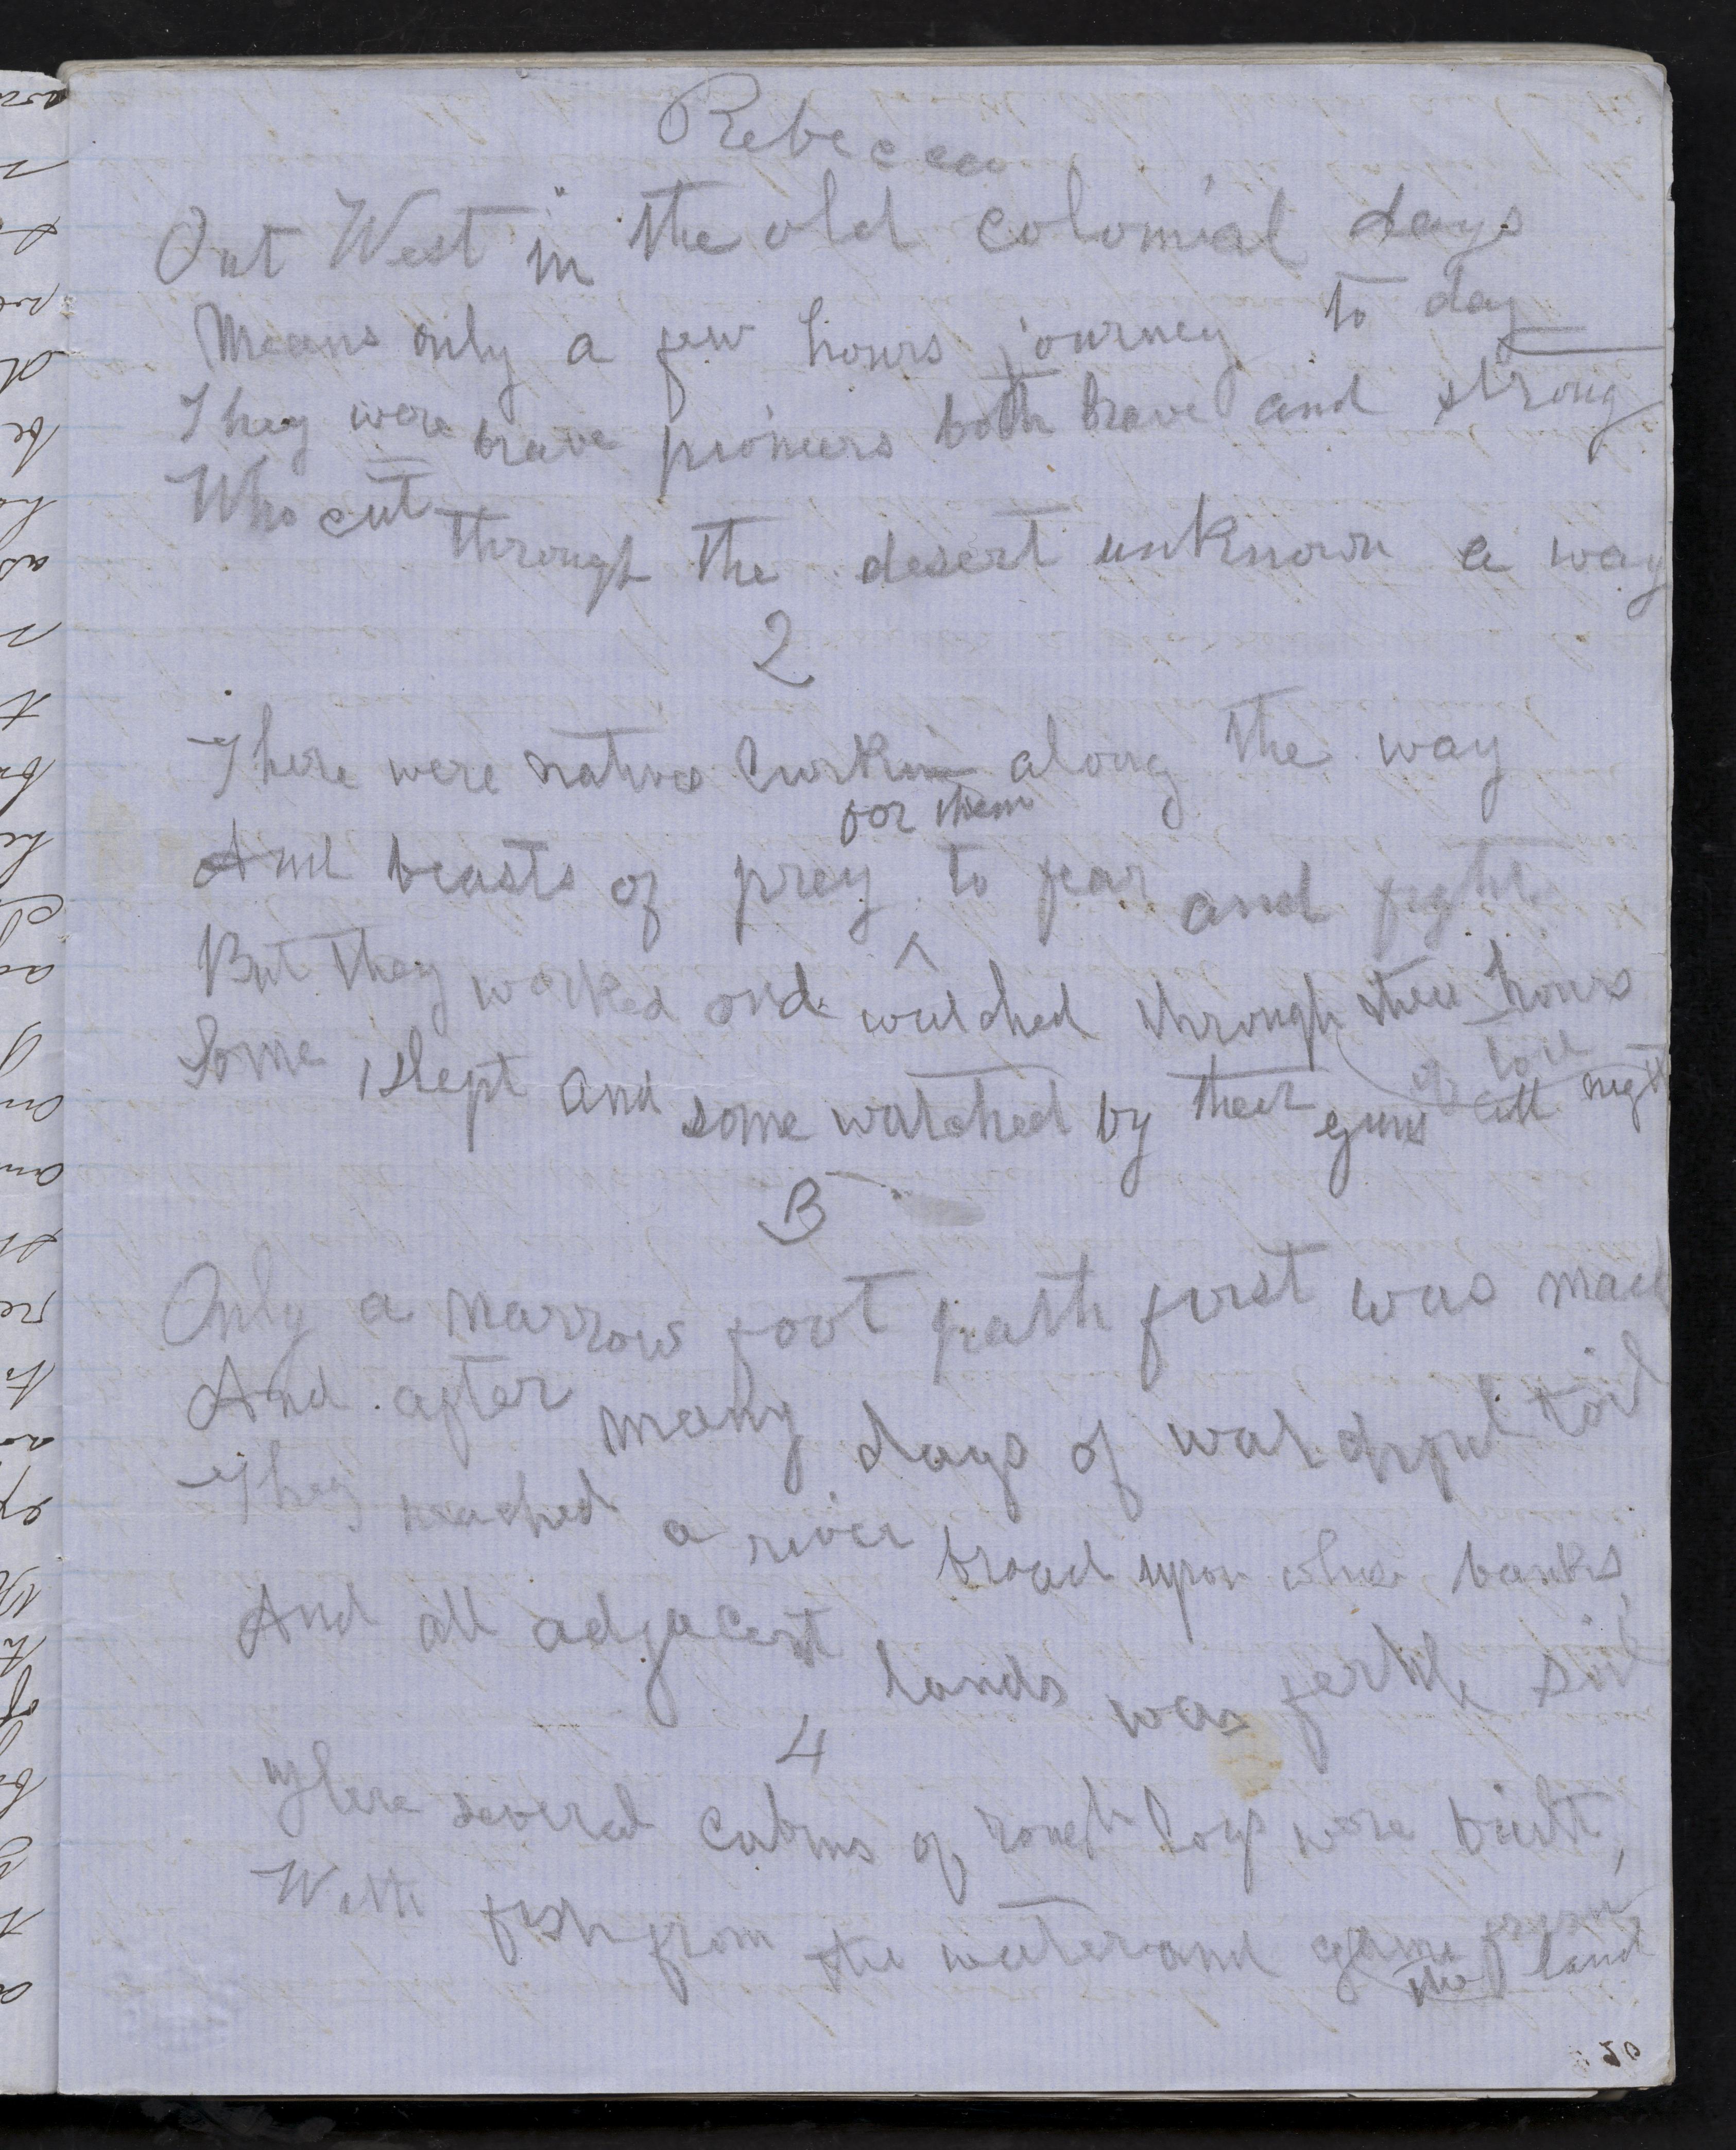 Rebecca
Out West in the old colonial days
Means only a few hours journey to day
They were brave pioneers both brave and strong
Who cut through the desert unknown a way
2
There were natives lurkin along the way
for them
And beasts of prey ^ to fear and fight
But they worked and watched through their hours
of toil
Some slept and some watched by their guns all night
3
Only a narrow foot path first was mad
And after many days of watchful toil
They reached a river broad upon whose banks
And all adjacent lands was fertile soil
4
Here several cabins of rough logs were built,
With fish from the water and game from
the land
50